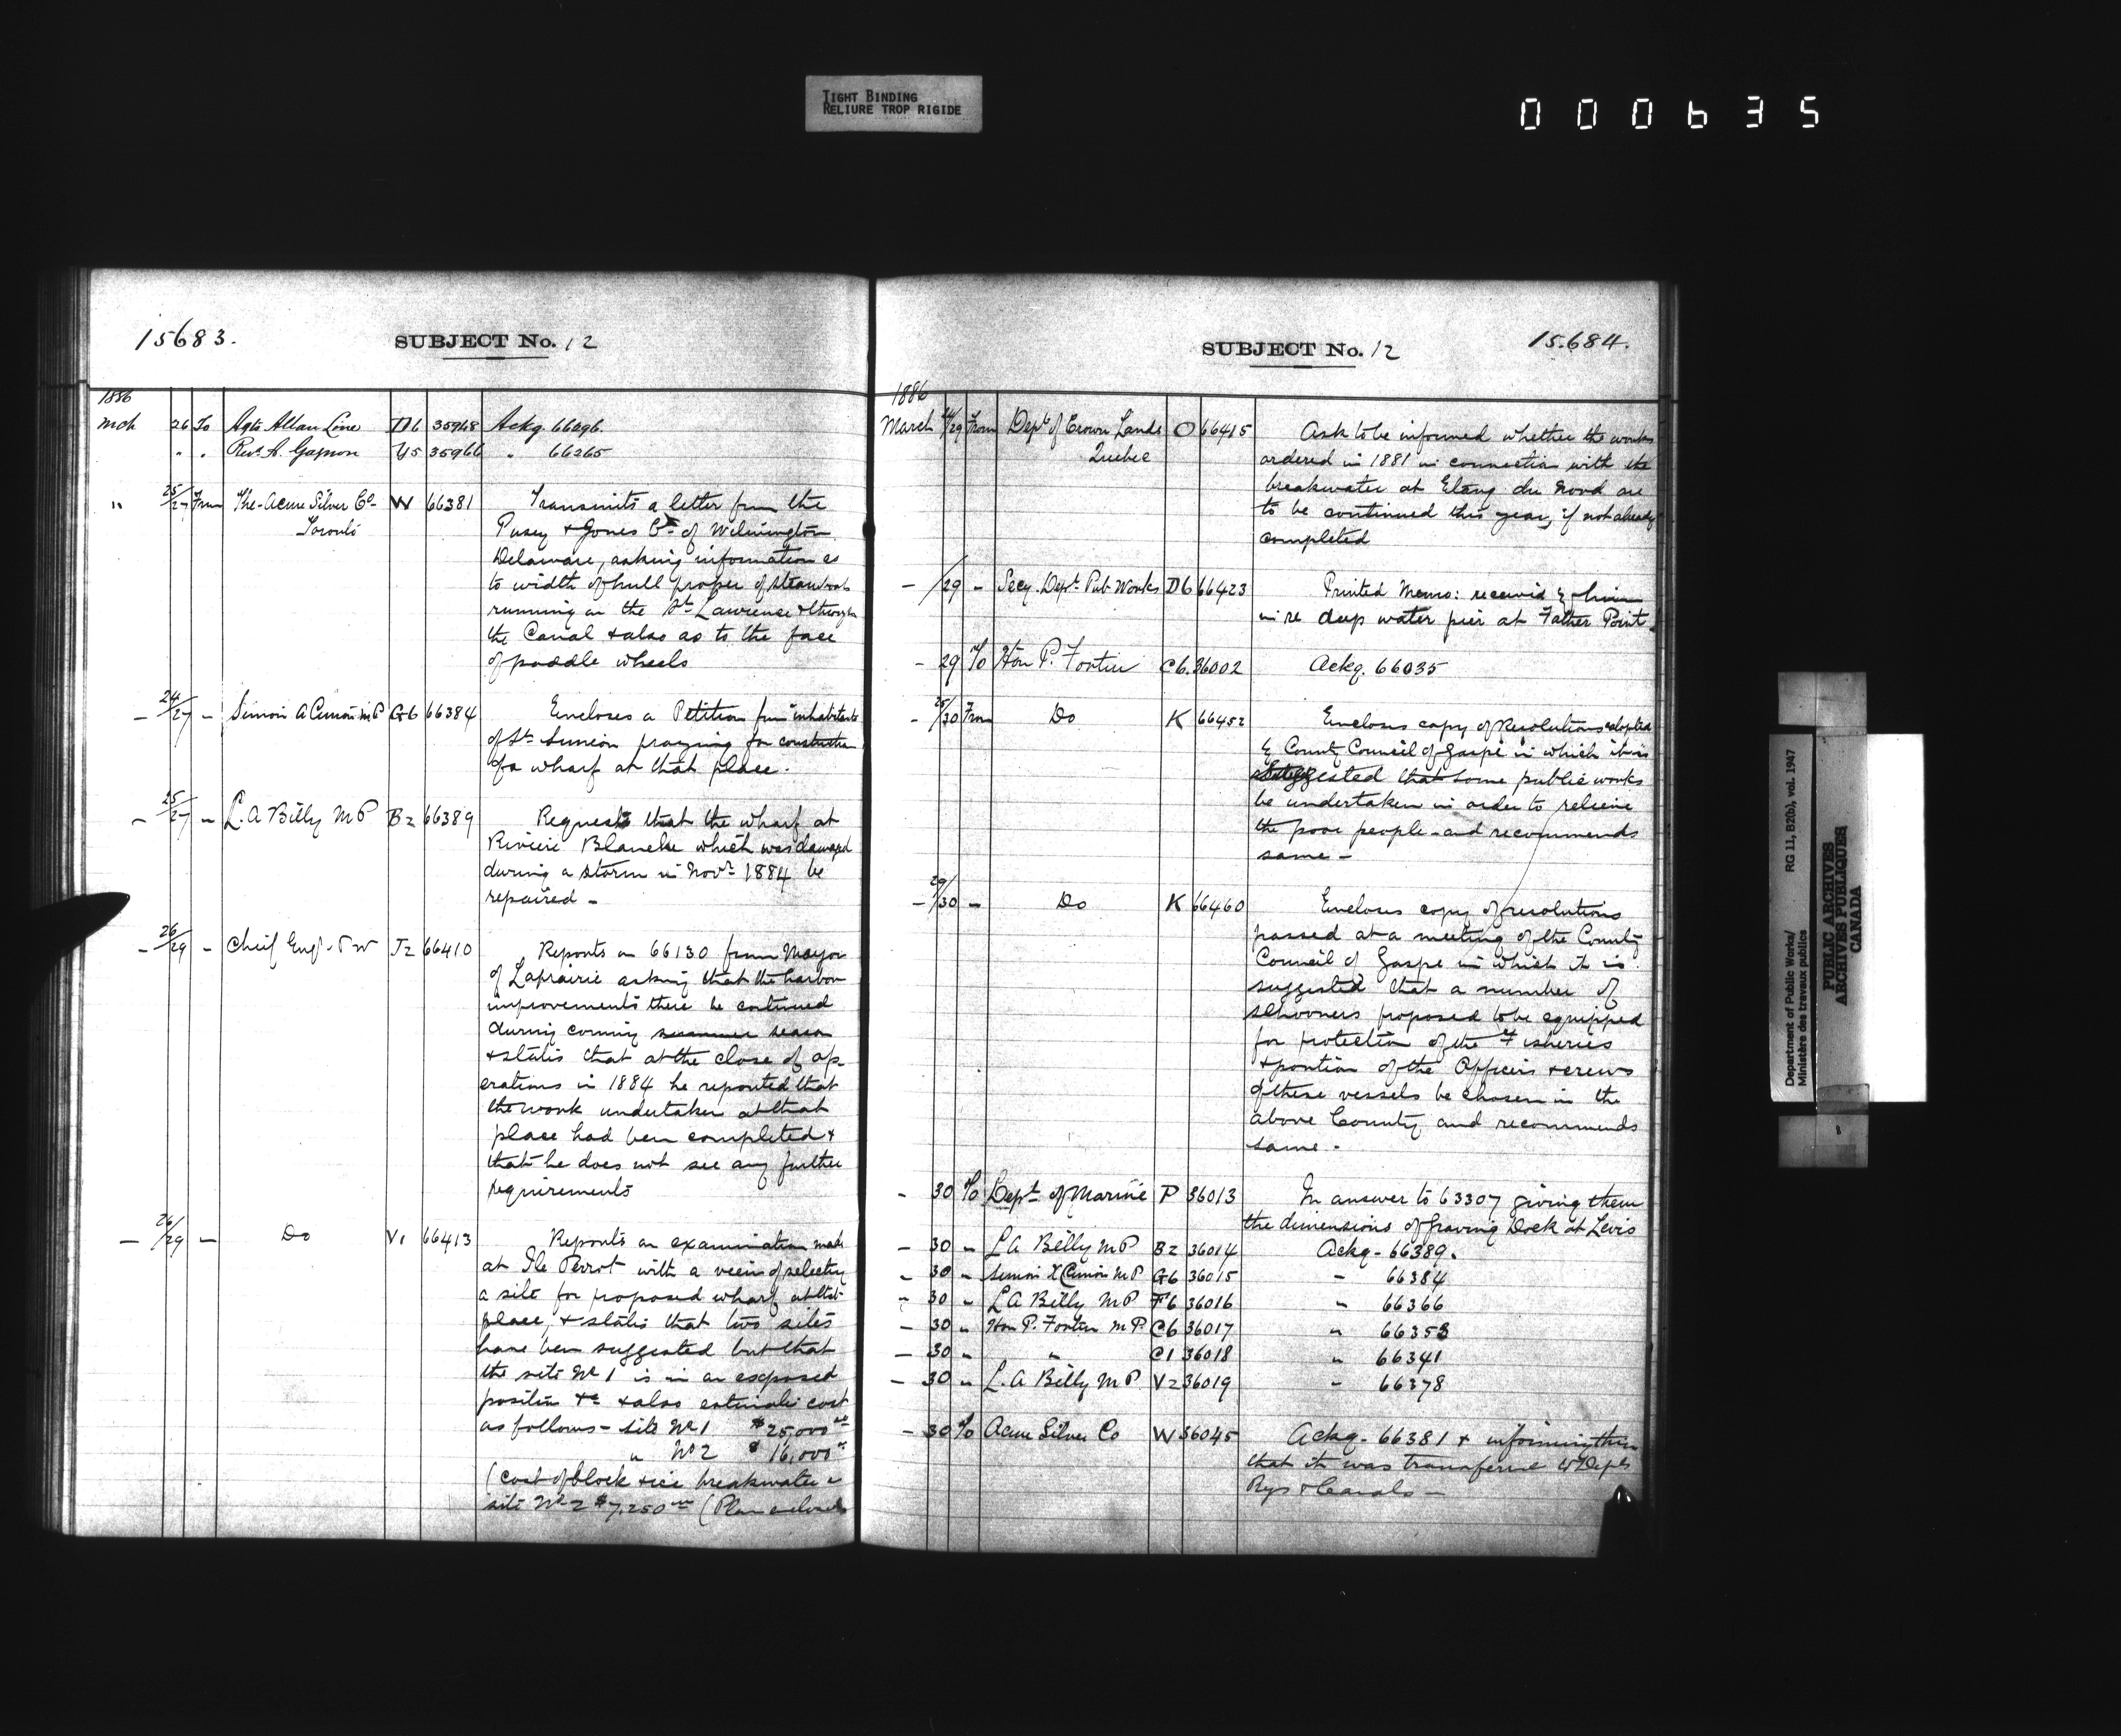 TIGHT BINDING
RELIURE TROP RIGIDE
000635
15683.
SUBJECT No. 12
1886
Mch 26 To Agts Allan Line D6 35968 Ackg. 66296
" " Revd A. Gagnon U5 35966 " 66265
" 25/27 From The Acme Silver Co W 66381 Transmits a letter from the
Toronto
Pusey & Jones Co of Wilmington
Delaware, asking information as
to width of hull proper of steamboats
running on the St Lawrence & through
the Canal & also as to the face
of paddle wheels
- 24/27 - Simon X Cimon M P G6 66384 Encloses a Petition from inhabitants
of St Simeon praying for construction
of a wharf at that place.
- 25/27 - L. A Billy M P B2 66389 Requests that the wharf at
Rivière Blanche which was damaged
during a storm in Novr 1884 be
repaired -
- 26/29 - Chief Engr P W J2 66410 Reports on 66130 from Mayor
of Laprairie asking that the harbor
improvements there be continued
during coming summer season
& states that at the close of op-
erations in 1884 he reported that
the work undertaken at that
place had been completed &
that he does not see any further
requirements
- 26/29 - Do V1 66413 Reports on examination made
at Ile Perrot with a view of selecting
a site for proposed wharf at that
place, & states that two sites
have been suggested but that
the site No 1 is in an exposed
position &c & also estimate cost
as follows - site No 1 $25,000
" No 2 $16,000
(cost of block & ice breakwater
site No 2 $7,250 (Plan enclosed
SUBJECT No. 12
15.684.
1886
March 24/29 From Dept of Crown Lands O 66415 Ask to be informed whether the works
Quebec
ordered in 1881 in connection with the
breakwater at Etang du Nord are
to be continued this year, if not already
completed
- /29 - Secy. Dept Pub Works D6 66423 Printed Memo: received by him
in re deep water pier at Father Point.
- 29 To Hon P. Fortin C6. 36002 Ackg. 66035
- 25/30 From Do K 66452 Encloses copy of Resolutions adopted
by County Council of Gaspé in which it is
suggested that some public works
be undertaken in order to relieve
the poor people - and recommends
same -
- 29/30 - Do K 66460 Encloses copy of resolutions
passed at a meeting of the County
Council of Gaspe in which it is
suggested that a number of
schooners proposed to be equipped
for protection of the Fisheries
& portion of the Officers & crews
of these vessels be chosen in the
above County and recommends
same -
- 30 To Dept of Marine P 36013 In answer to 63307 giving them
the dimensions of Graving Dock at Levis
- 30 " L A Billy M P B2 36014 Ackg - 66389.
- 30 " Simon X Cimon M P G6 36015 " 66384
- 30 " L A Billy M P F6 36016 " 66366
- 30 " Hon P. Fortin M P. C6 36017 " 66353
- 30 " " C1 36018 " 66341
- 30 " L. A Billy M P. V2 36019 " 66378
- 30 To Acme Silver Co W 36045 Ackg. 66381 & informing them
that it was transferred to Dept
Rys & Canals -
Department of Public Works/ RG 11, B2(b), vol. 1947
Ministère des travaux publics
PUBLIC ARCHIVES
ARCHIVES PUBLIQUES
CANADA
8